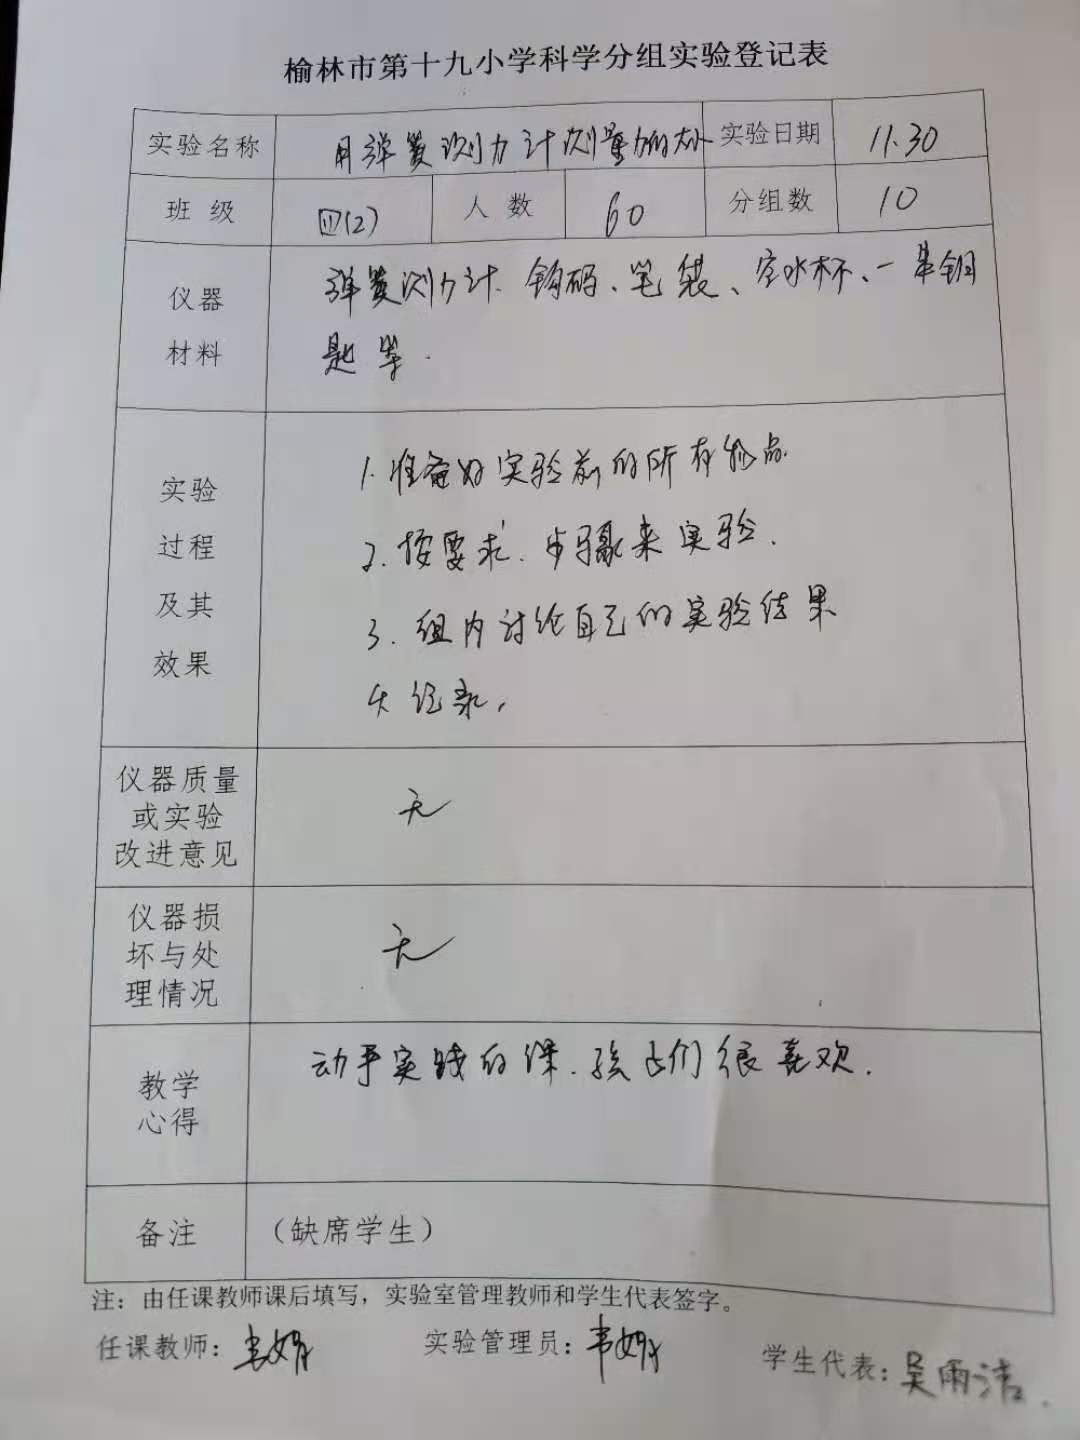 榆林市第十九小学科学分组实验登记表
实验名称 用弹簧测力计测量力的大小 实验日期 11.30
班 级 四(2) 人 数 60 分组数 10
仪器
材料
弹簧测力计、钩码、笔袋、空水杯、一串钥
匙等.
实验
过程
及其
效果
1.准备好实验前的所有物品
2.按要求、步骤来实验.
3.组内讨论自己的实验结果
4.记录.
仪器质量
或实验
改进意见
无
仪器损
坏与处
理情况
无
教学
心得
动手实践的课.孩子们很喜欢.
备注 (缺席学生)
注：由任课教师课后填写，实验室管理教师和学生代表签字。
任课教师：韦娟 实验管理员：韦娟 学生代表：吴雨洁.